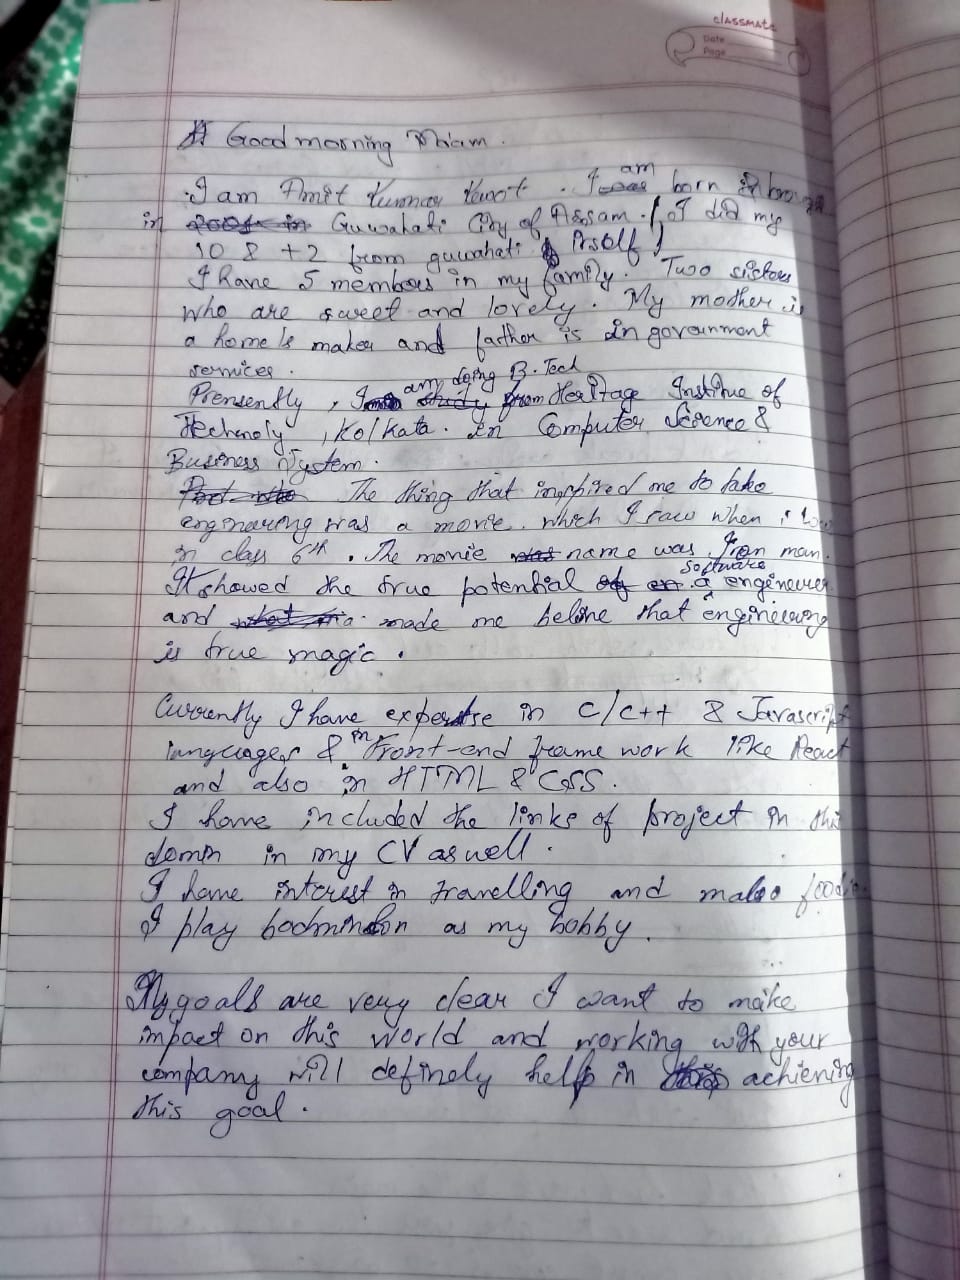 classmate
Date
Page
Good morning Ma'am.
I am Amit Kumar Kewot. I am born & brou
in Guwahati City of Assam. (I did my
10 & +2 from guwahati itself)
I have 5 members in my family. Two sisters
who are sweet and lovely. My mother is
a home maker and father is in government
services.
Prensently, I am doing B.Tech from Heritage Institue of
Technoly, Kolkata. in Computer Science &
Business System.
The thing that inspired me to take
enginaring was a movie. which I saw when i
in class 6th. The movie name was Iron man.
It showed the true potential a software engineuer
and made me belive that engineering
is true magic.
Currently I have expertse in C/C++ & Javascript
languages & in Front-end frame work like React
and also in HTML & CSS.
I have included the links of project in this
domin in my CV as well.
I have intrest in travelling and foodi
I play badminton as my hobby.
My goals are very clear I want to make
impact on this world and working with your
company will definely help in achieving
this goal.